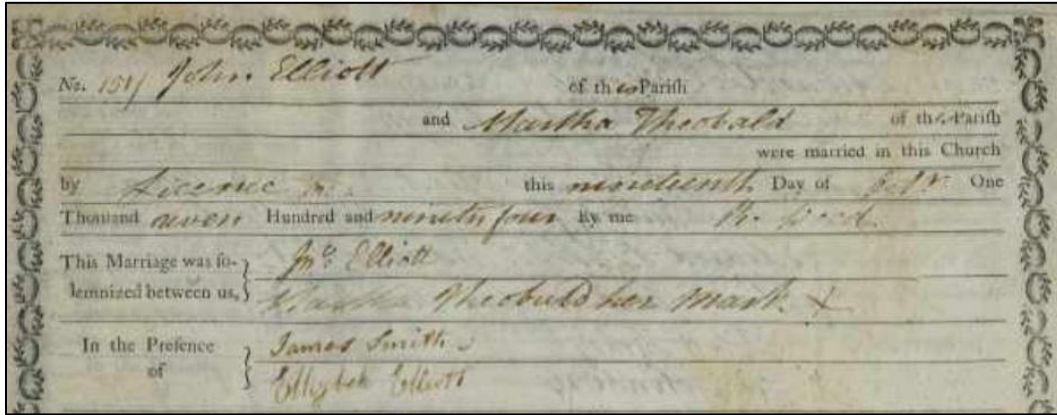 No. John Elliott of this Parish
and Martha Theobald of this Parish
were married in this Church
by Licence this nineteenth Day of One
Thousand seven Hundred and ninety four By me R.
This Marriage was so- Jno. Elliott
lemnized between us, Martha Theobald her mark X
In the Presence James Smith
of Elliott